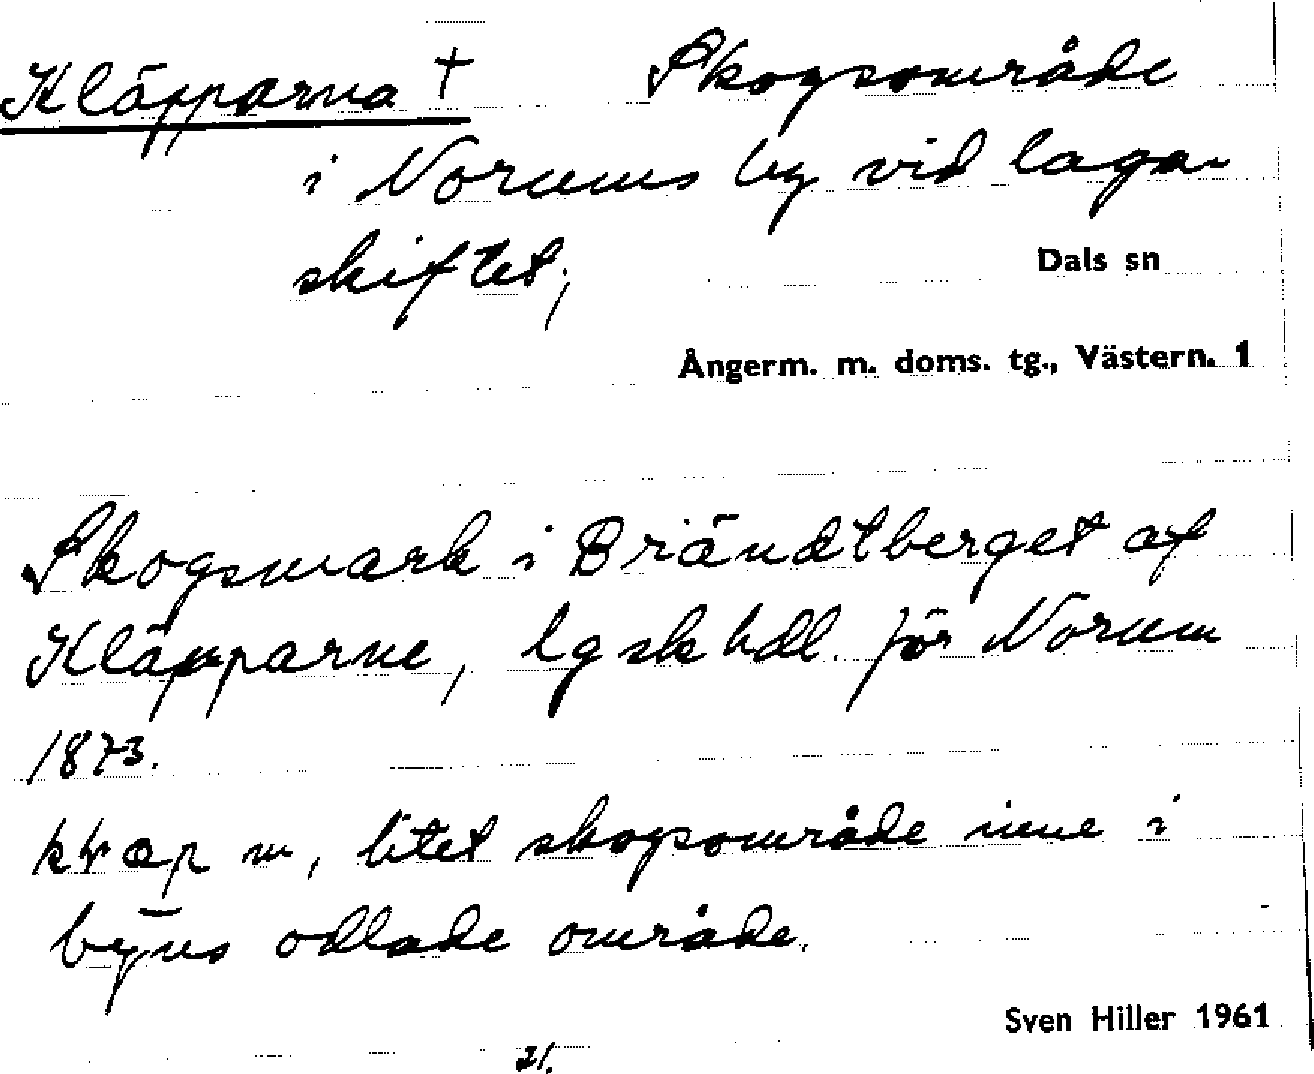 Kläpparna † Skogsområde
i Norums by vid laga
skiftet;
Dals sn
Ångerm. m. doms. tg., Västern. 1
Skogsmark i Brändtberget af
Kläpparne, lgsk hdl. för Norum
1873.
m, litet skogsområde inne i
byns odlade område.
Sven Hiller 1961
21.